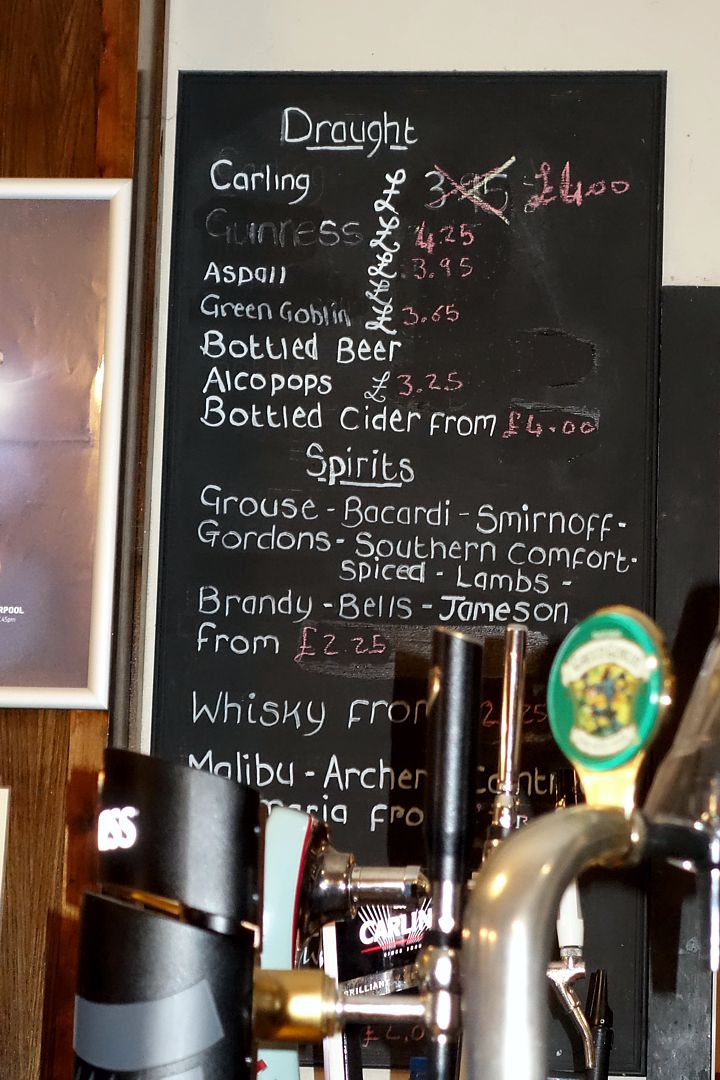 Draught
Carling 3.95 £4.00
Guinness £ 4.25
Aspall £ 3.95
Green Goblin £ 3.65
Bottled Beer
Alcopops £ 3.25
Bottled Cider from £4.00
Spirits
Grouse - Bacardi - Smirnoff -
Gordons - Southern Comfort -
Spiced - Lambs -
Brandy - Bells - Jameson
From £2.25
Whisky from
Malibu - Archer
CARLIN
BRILLIANT